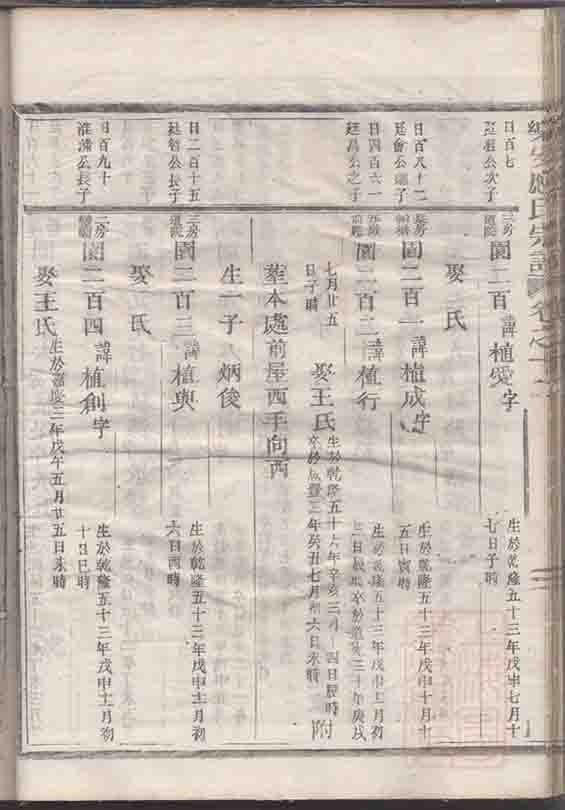 氏宗譜 卷之十
日百七
廷祖公次子
三房
園二百 諱植愛字
生於乾隆五十三年戊申七月十
七日子時
娶 氏
日百八十二
園二百一 諱植成字
生於乾隆五十三年戊申十月十
五日寅時
日四百六一
廷昌公之子
園二百二 諱植行
生於乾隆五十三年戊申十一月初
卒於道光三十年庚戌
七月廿五
日子時
娶王氏
生於乾隆五十六年辛亥三月十四日辰時
卒於咸豐三年癸丑七月初六日未時
附
葬本處前屋西手向西
生一子 炳俊
日二百十五
廷 公長子
三房
園二百三 諱植輿
生於乾隆五十三年戊申十一月初
六日酉時
娶 氏
日百九十
淮 公長子
二房
園二百四 諱植創字
生於乾隆五十三年戊申十一月初
十日巳時
娶王氏
生於嘉慶三年戊午五月廿五日未時